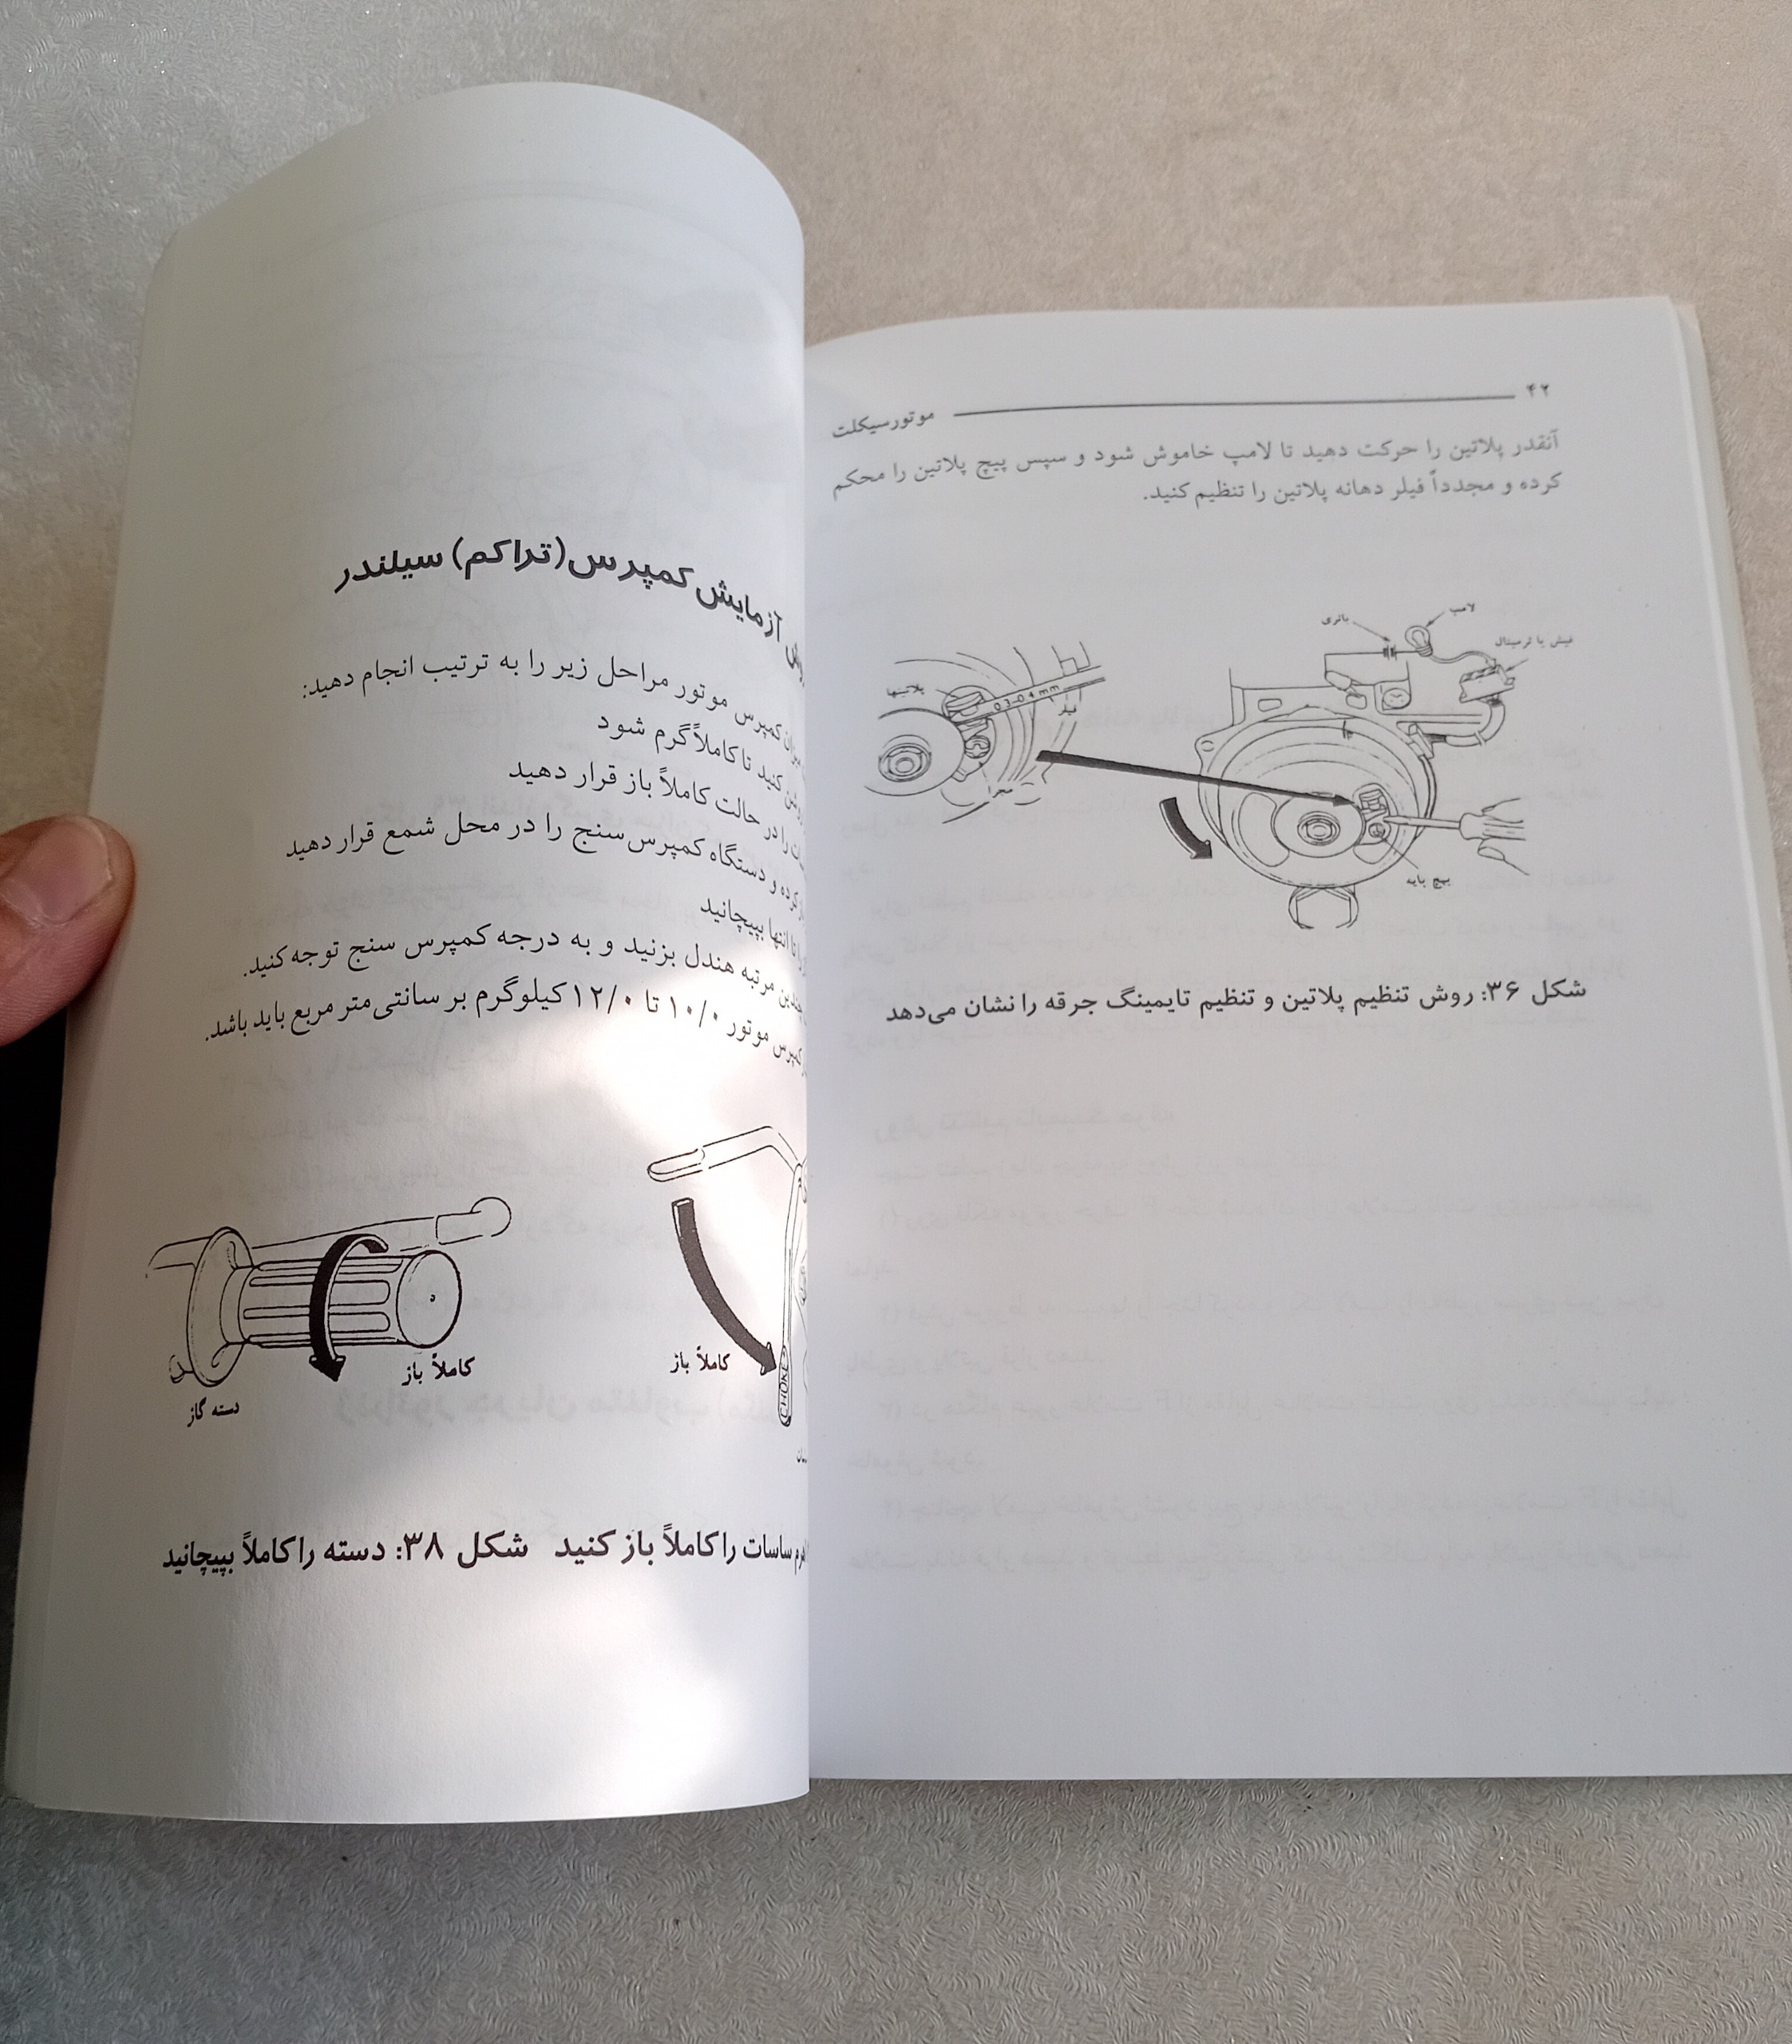 ۴۲
موتورسیکلت
آنقدر پلاتین را حرکت دهید تا لامپ خاموش شود و سپس پیچ پلاتین را محکم
کرده و مجدداً فیلر دهانه پلاتین را تنظیم کنید.
لامپ
باتری
فیش یا ترمینال
پلاتینها
0.3-0.4 mm
فیلر
مجرا
پیچ پایه
شکل ۳۶: روش تنظیم پلاتین و تنظیم تایمینگ جرقه را نشان می‌دهد
آزمایش کمپرس (تراکم) سیلندر
کمپرس موتور مراحل زیر را به ترتیب انجام دهید:
کنید تا کاملاً گرم شود
را در حالت کاملاً باز قرار دهید
کرده و دستگاه کمپرس‌سنج را در محل شمع قرار دهید
را تا انتها بپیچانید
چندین مرتبه هندل بزنید و به درجه کمپرس سنج توجه کنید.
کمپرس موتور ۱۰/۰ تا ۱۲/۰ کیلوگرم بر سانتی‌متر مربع باید باشد.
CHOKE
کاملاً باز
کاملاً باز
دسته گاز
ساسات را کاملاً باز کنید
شکل ۳۸: دسته را کاملاً بپیچانید